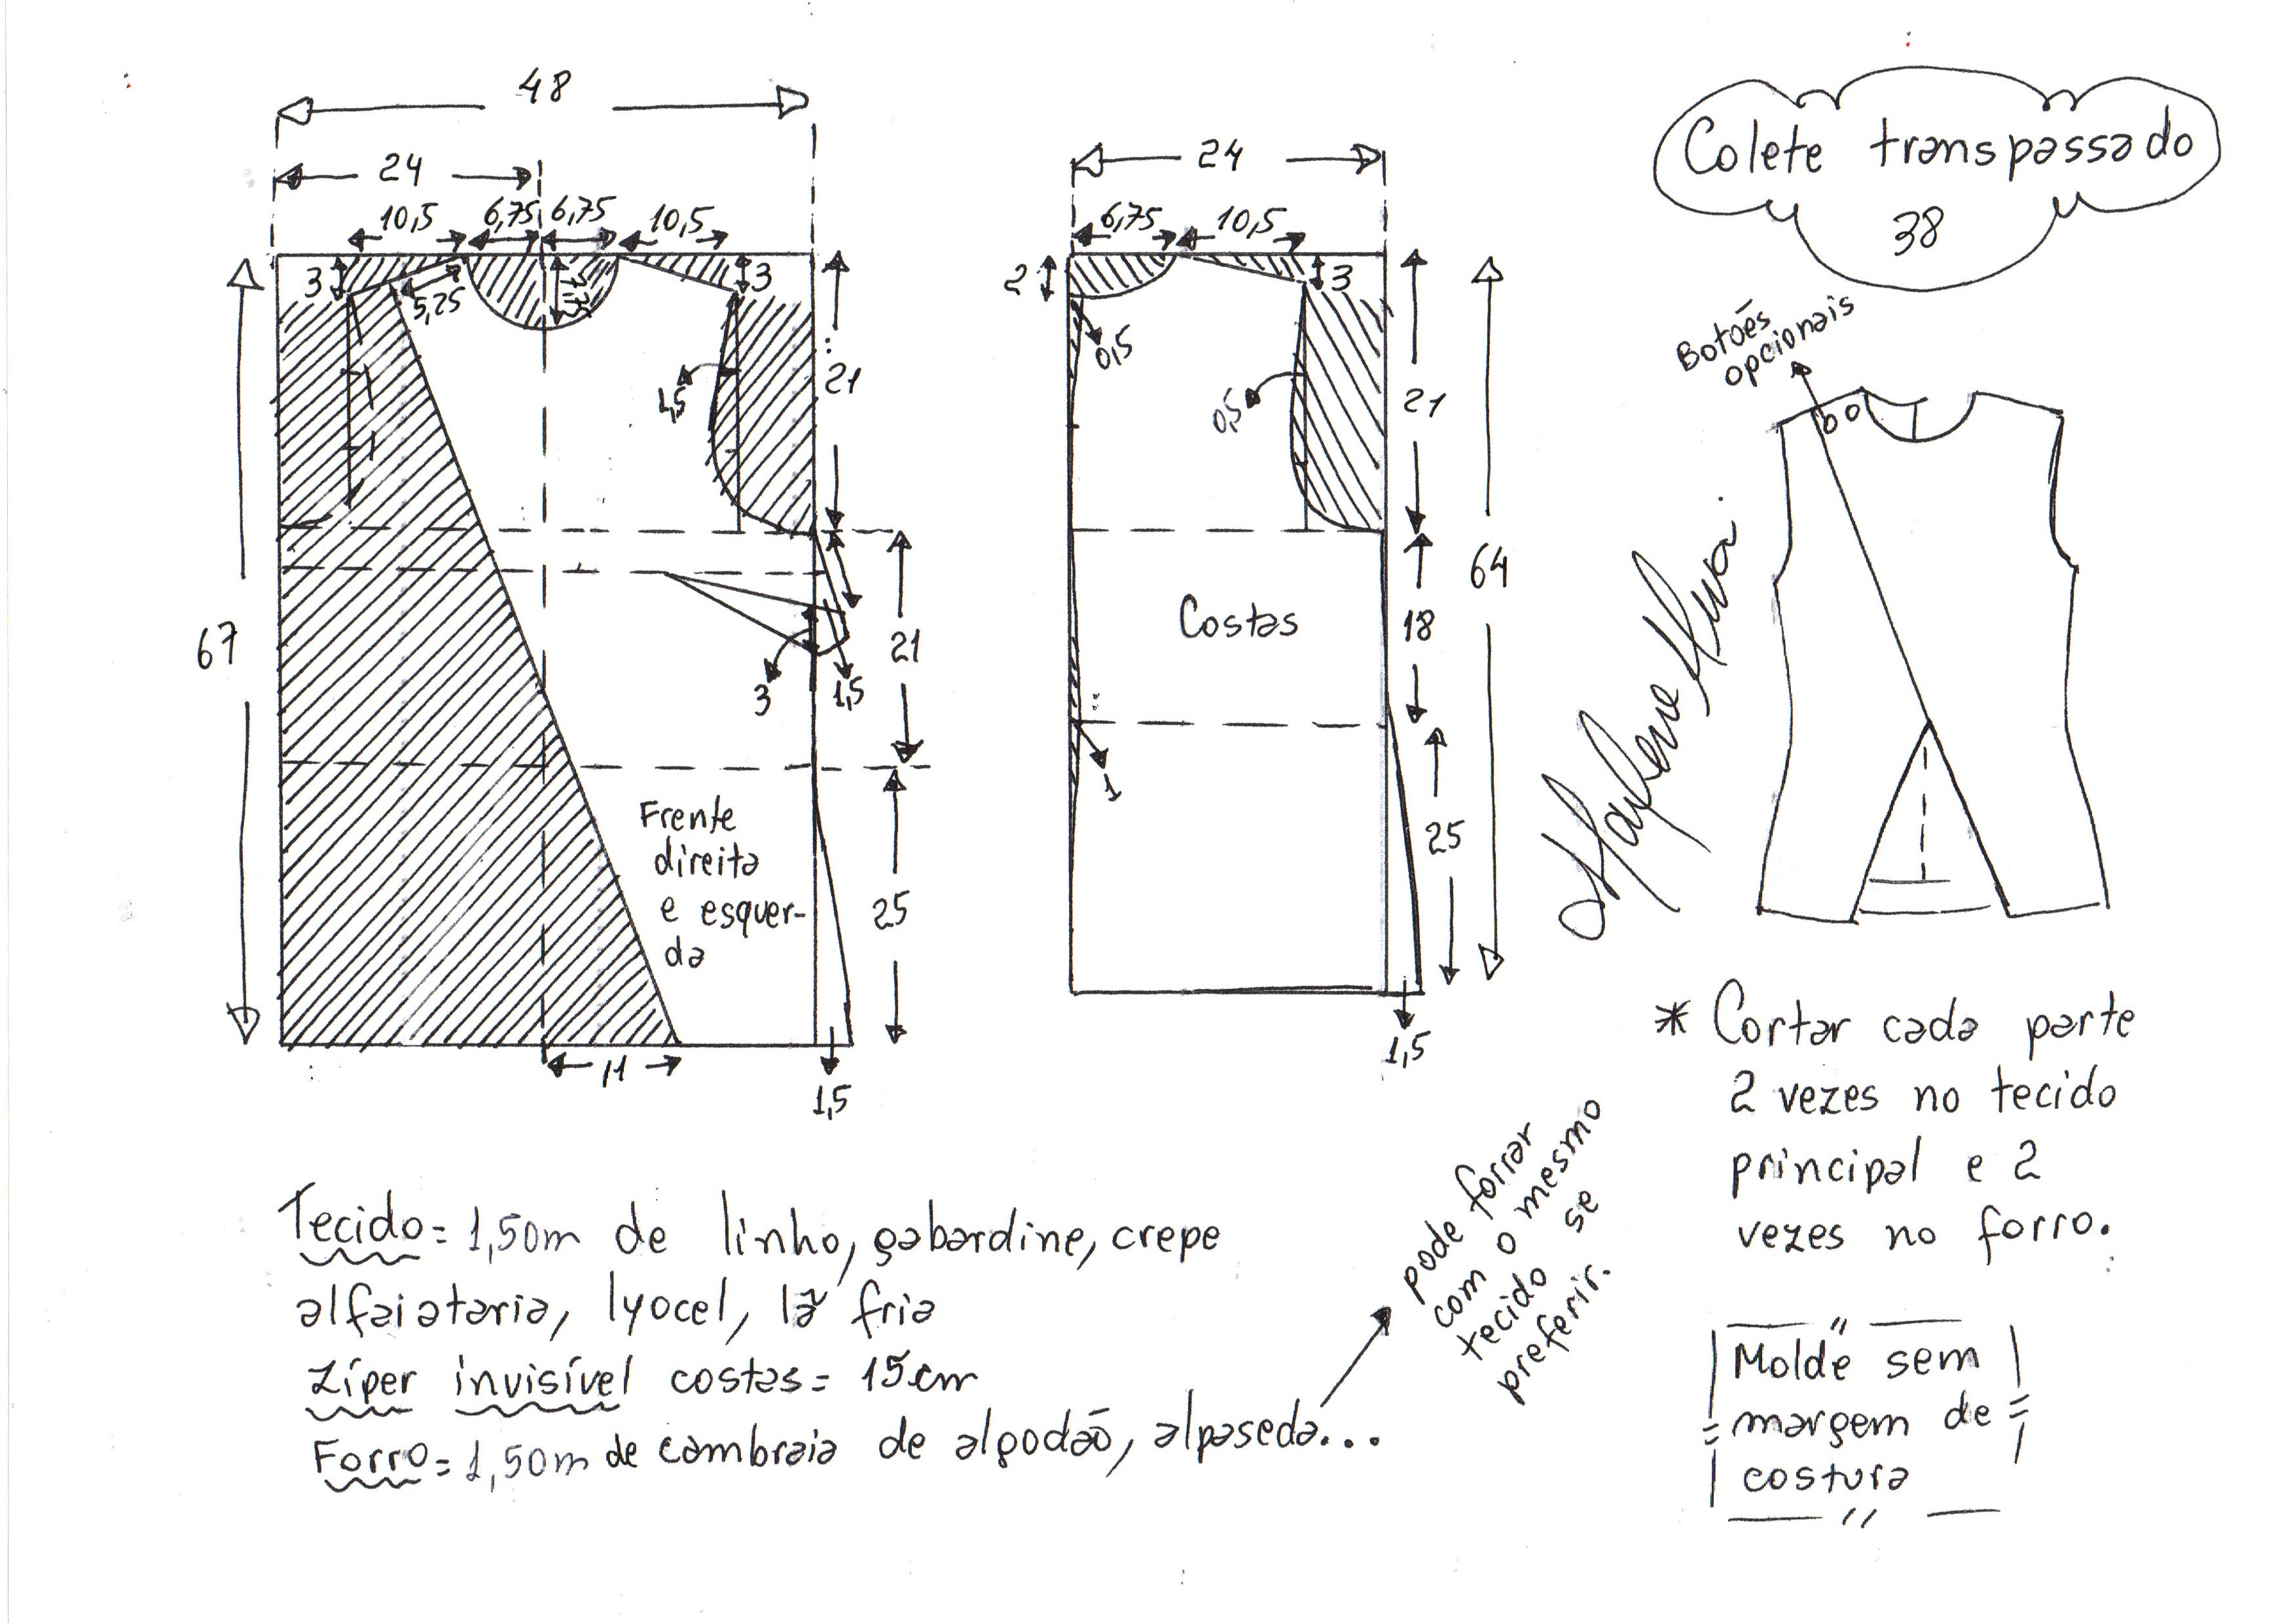 48
24
10,5 6,75 6,75 10,5
3
5,25
3
1,5
21
67
21
3
1,5
Frente
direita
e esquer-
da
25
11
1,5
24
6,75 10,5
2
3
0,5
0,5
21
64
Costas
18
1
25
1,5
Colete transpassado
38
Botões
opcionais
* Cortar cada parte
2 vezes no tecido
principal e 2
vezes no forro.
Molde sem
margem de
costura
Tecido = 1,50m de linho, gabardine, crepe
alfaiataria, lyocel, lã fria
Zíper invisível costas = 15cm
Forro = 1,50m de cambraia de algodão, alpaseda...
pode forrar
com o mesmo
tecido se
preferir.